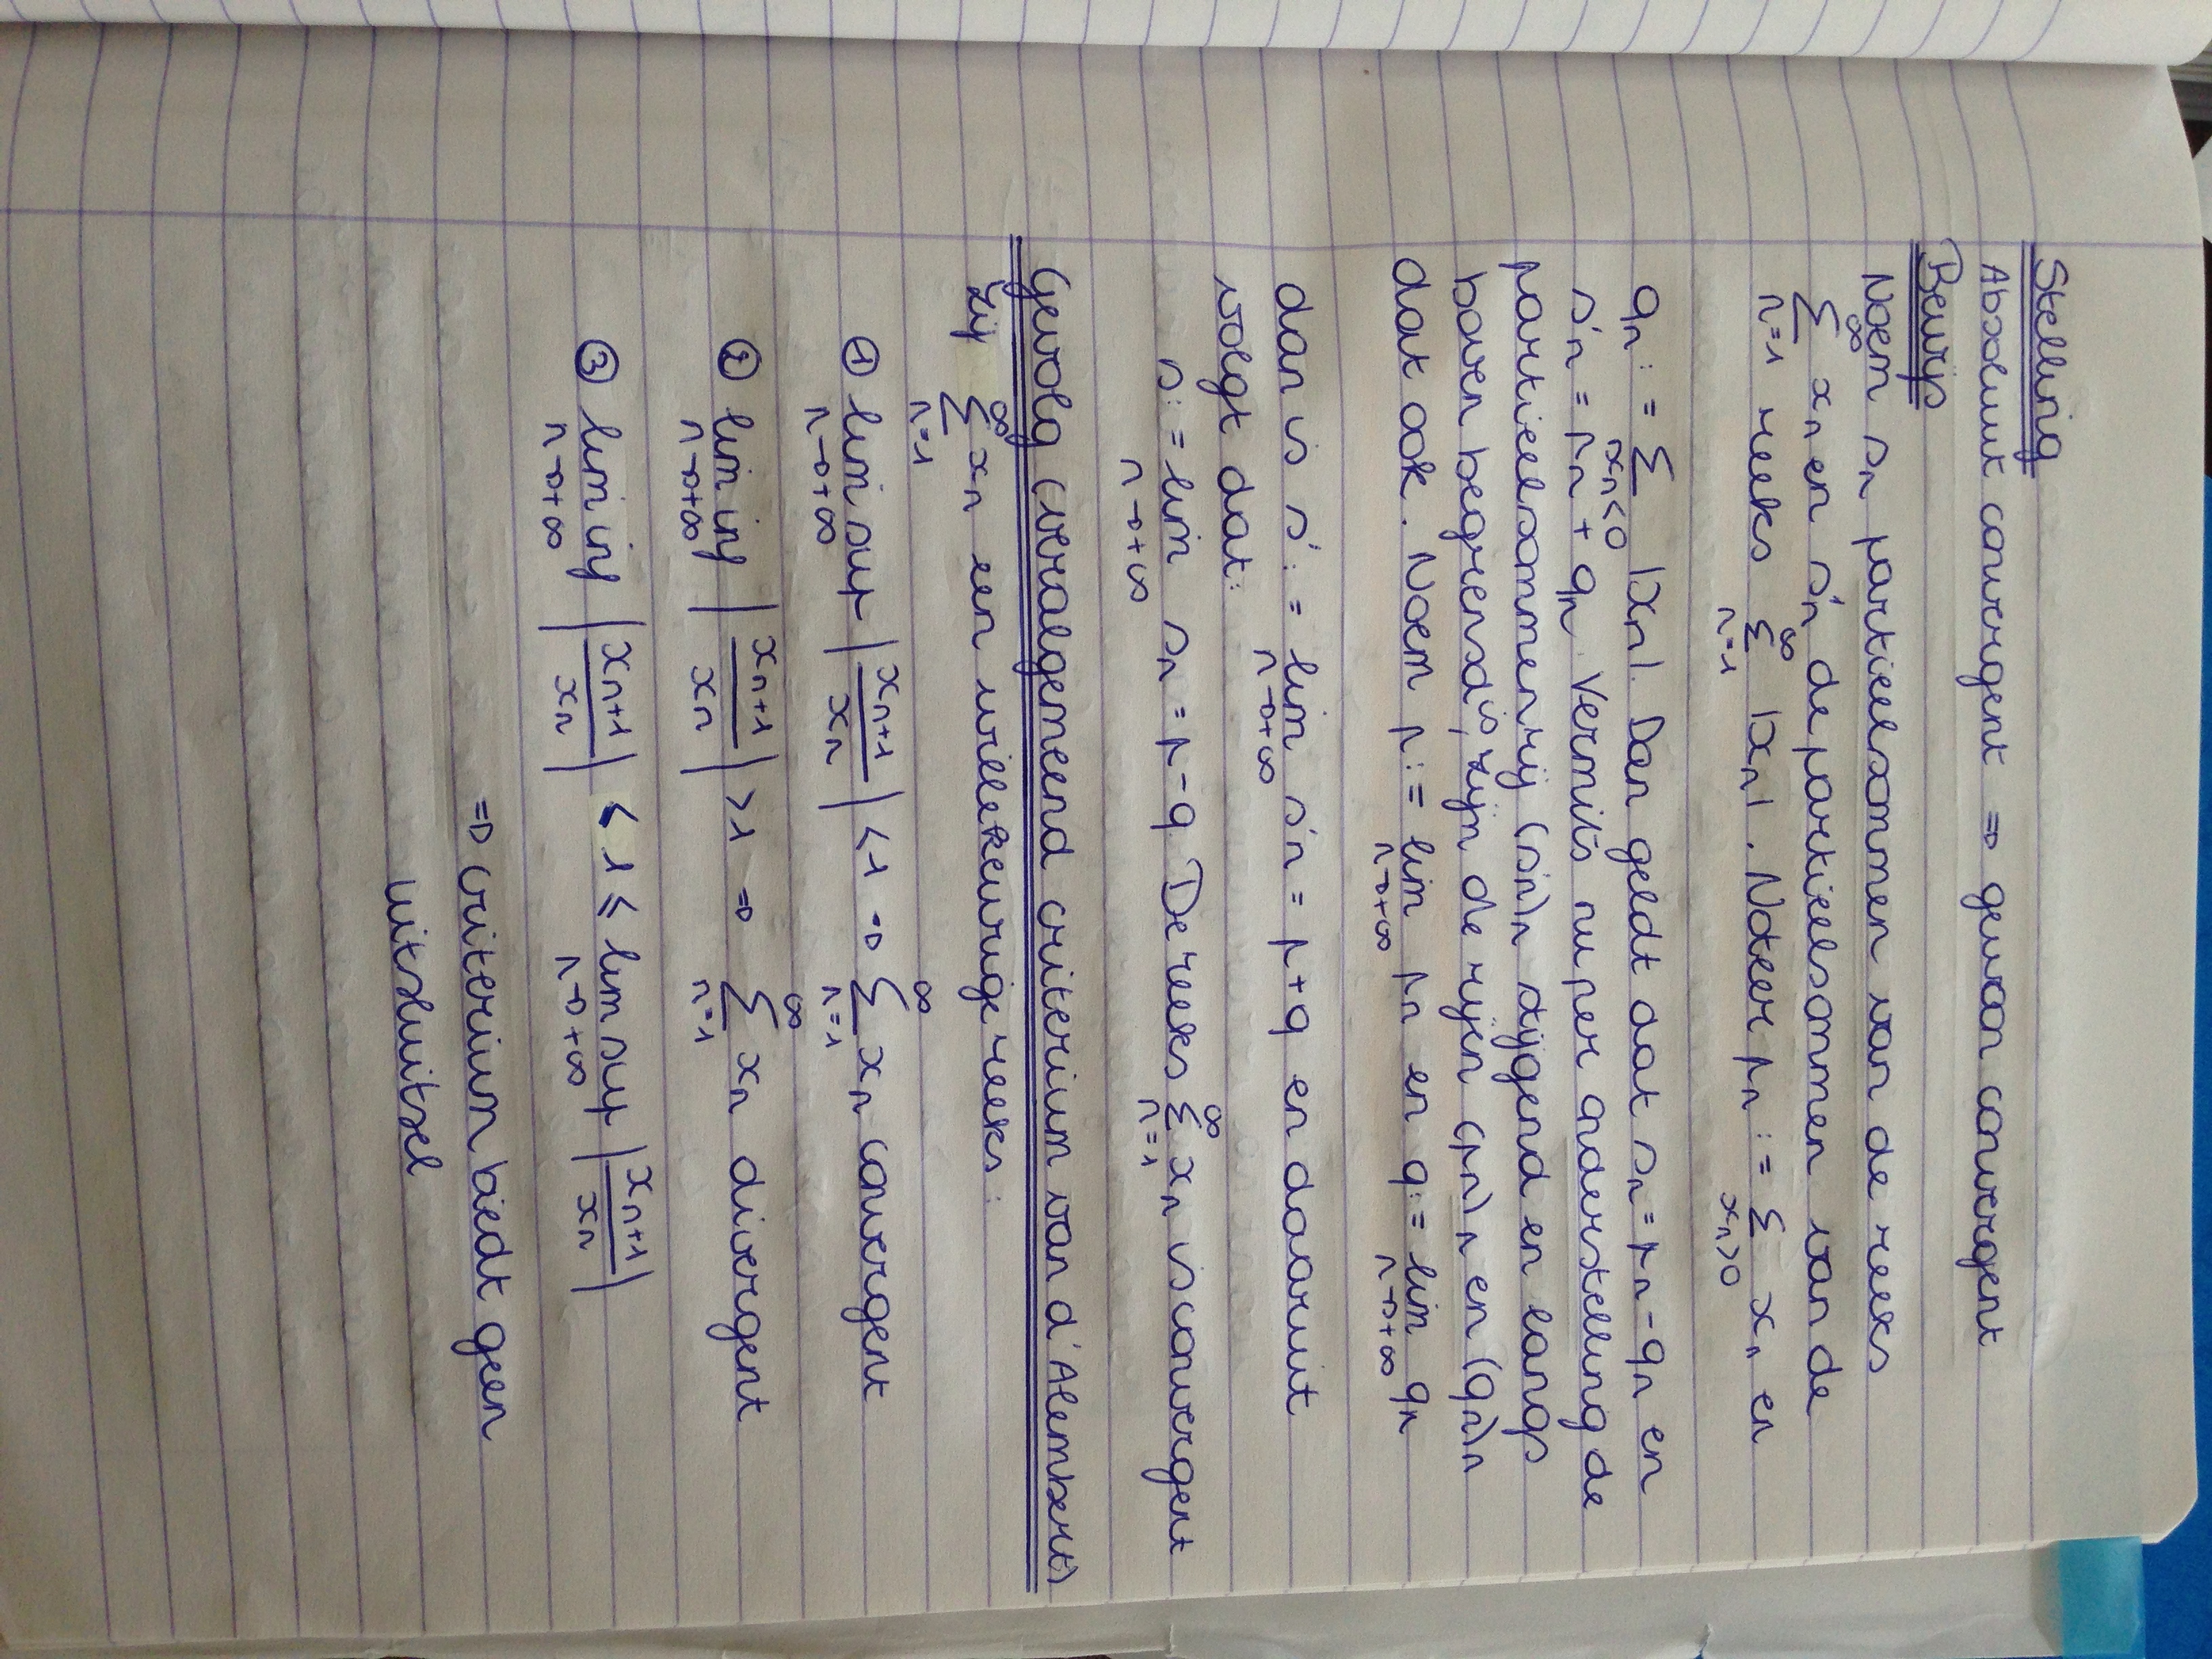 Stelling
Absoluut convergent ⇒ gewoon convergent
Bewijs
Noem sₙ partieelsommen van de reeks
∑_{n=1}^{∞} xₙ en s'ₙ de partieelsommen van de
reeks ∑_{n=1}^{∞} |xₙ|. Noteer pₙ := ∑_{xₙ>0} xₙ en
qₙ := ∑_{xₙ<0} |xₙ|. Dan geldt dat sₙ = pₙ - qₙ en
s'ₙ = pₙ + qₙ Vermits nu per onderstelling de
partieelsommenrij (s'ₙ)ₙ stijgend en langs
boven begrensd is, zijn de rijen (pₙ)ₙ en (qₙ)ₙ
dat ook. Noem p := lim_{n→+∞} pₙ en q := lim_{n→+∞} qₙ
dan is s' := lim_{n→+∞} s'ₙ = p+q en daaruit
volgt dat:
s := lim_{n→+∞} sₙ = p-q De reeks ∑_{n=1}^{∞} xₙ is convergent
Gevolg (veralgemeend criterium van d'Alembert)
Zij ∑_{n=1}^{∞} xₙ een willekeurige reeks:
① lim sup_{n→+∞} |xₙ₊₁/xₙ| < 1 ⇒ ∑_{n=1}^{∞} xₙ convergent
② lim inf_{n→+∞} |xₙ₊₁/xₙ| > 1 ⇒ ∑_{n=1}^{∞} xₙ divergent
③ lim inf_{n→+∞} |xₙ₊₁/xₙ| < 1 ≤ lim sup_{n→+∞} |xₙ₊₁/xₙ|
⇒ criterium biedt geen
uitsluitsel